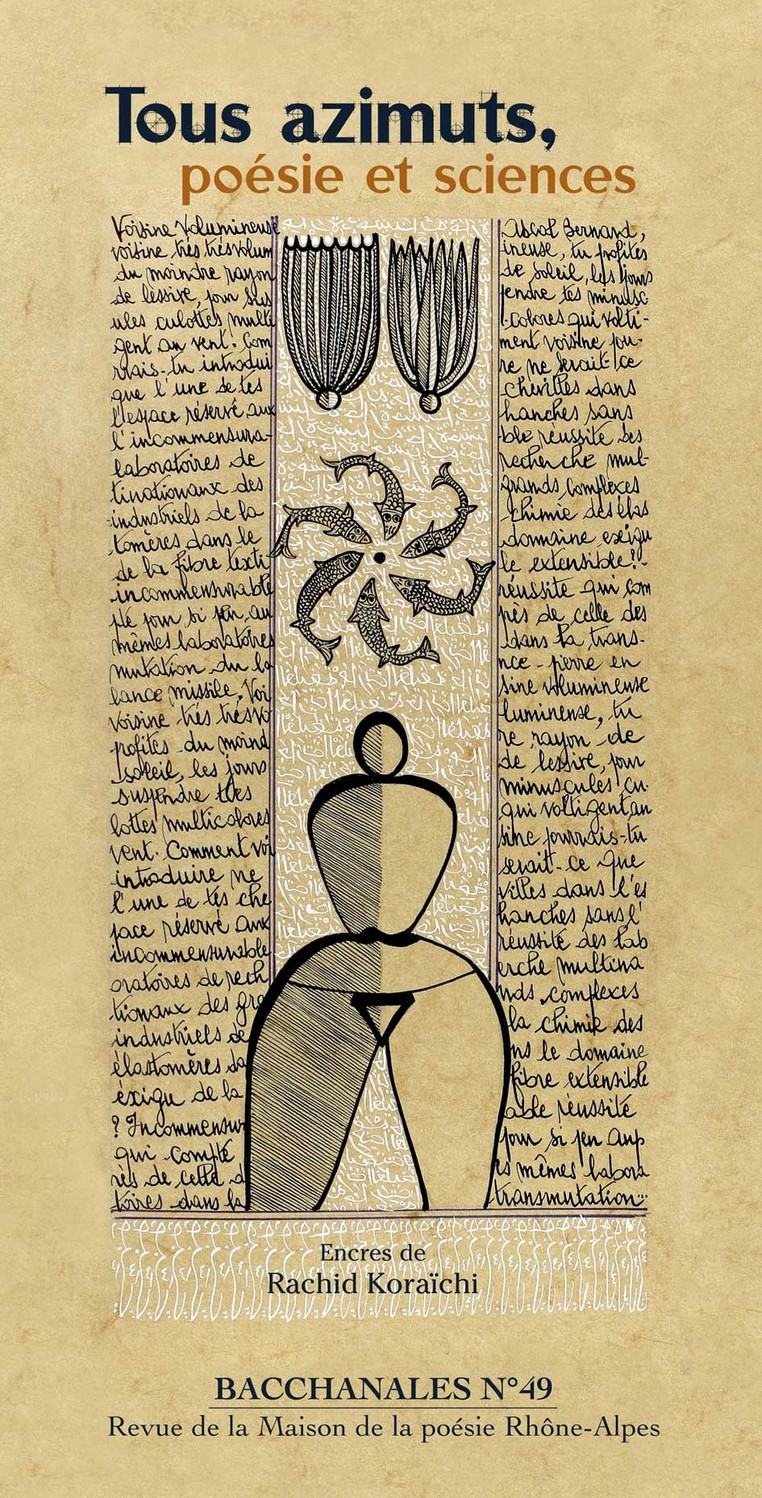 Tous azimuts,
poésie et sciences
Voisine Volumineuse
ascal Bernard,
voisine très très volum
ineuse, tu profites
du moindre rayon
de soleil, les jours
de lessive, pour sus
pendre tes minusc
ules culottes multi
colores qui volti-
gent au vent. Com
ment voisine pou-
rrais-tu introdui
re ne serait-ce
que l'une de tes
chevilles dans
l'espace réservé aux
hanches sans
l'incommensura-
ble réussite des
laboratoires de
recherche mul-
tinationaux des
grands complexes
industriels de la
chimie des élas
tomères dans le
domaine exigu
de la fibre texti
le extensible?
incommensurable
réussite qui com
pte pour si peu, au
près de celle des
mêmes laboratoires
dans la trans-
mutation du la
nce-pierre en
lance missile. Voi
sine volumineuse
voisine très très vo
lumineuse, tu
profites du moind
re rayon de
soleil, les jours
de lessive, pour
suspendre tes
minuscules cu
lottes multicolores
qui voltigent au
vent. Comment voi
sine pourrais-tu
introduire ne
serait-ce que
l'une de tes che
villes dans l'es
pace réservé aux
hanches sans l'
incommensurable
réussite des lab
oratoires de rech
erche multina
tionaux des gra
nds complexes
industriels de
la chimie des
élastomères da
ns le domaine
éxigu de la
fibre extensible
? Incommensur
able réussite
qui compte
pour si peu aup
rès de celle d
es mêmes labora
toires dans la
transmutation..
Encres de
Rachid Koraïchi
BACCHANALES N°49
Revue de la Maison de la poésie Rhône-Alpes